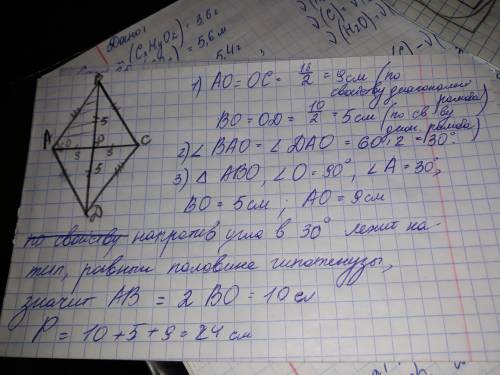 Дано:
(C₂H₄O₂) = 3,6г
= 5,6 л
5,4г
ν(H₂O) = ν(
B
A
C
D
O
5
5
1) AO = OC = 18/2 = 9см (по
свойству диагоналей
ромба)
BO = OD = 10/2 = 5см (по св-ву
диаг. ромба)
2) ∠BAO = ∠DAO = 60:2 = 30°
3) △ ABO, ∠O = 90°, ∠A = 30°,
BO = 5см; AO = 9см
по свойству напротив угла в 30° лежит ка-
тет, равный половине гипотенузы,
значит AB = 2 BO = 10см
P = 10 + 5 + 9 = 24 см